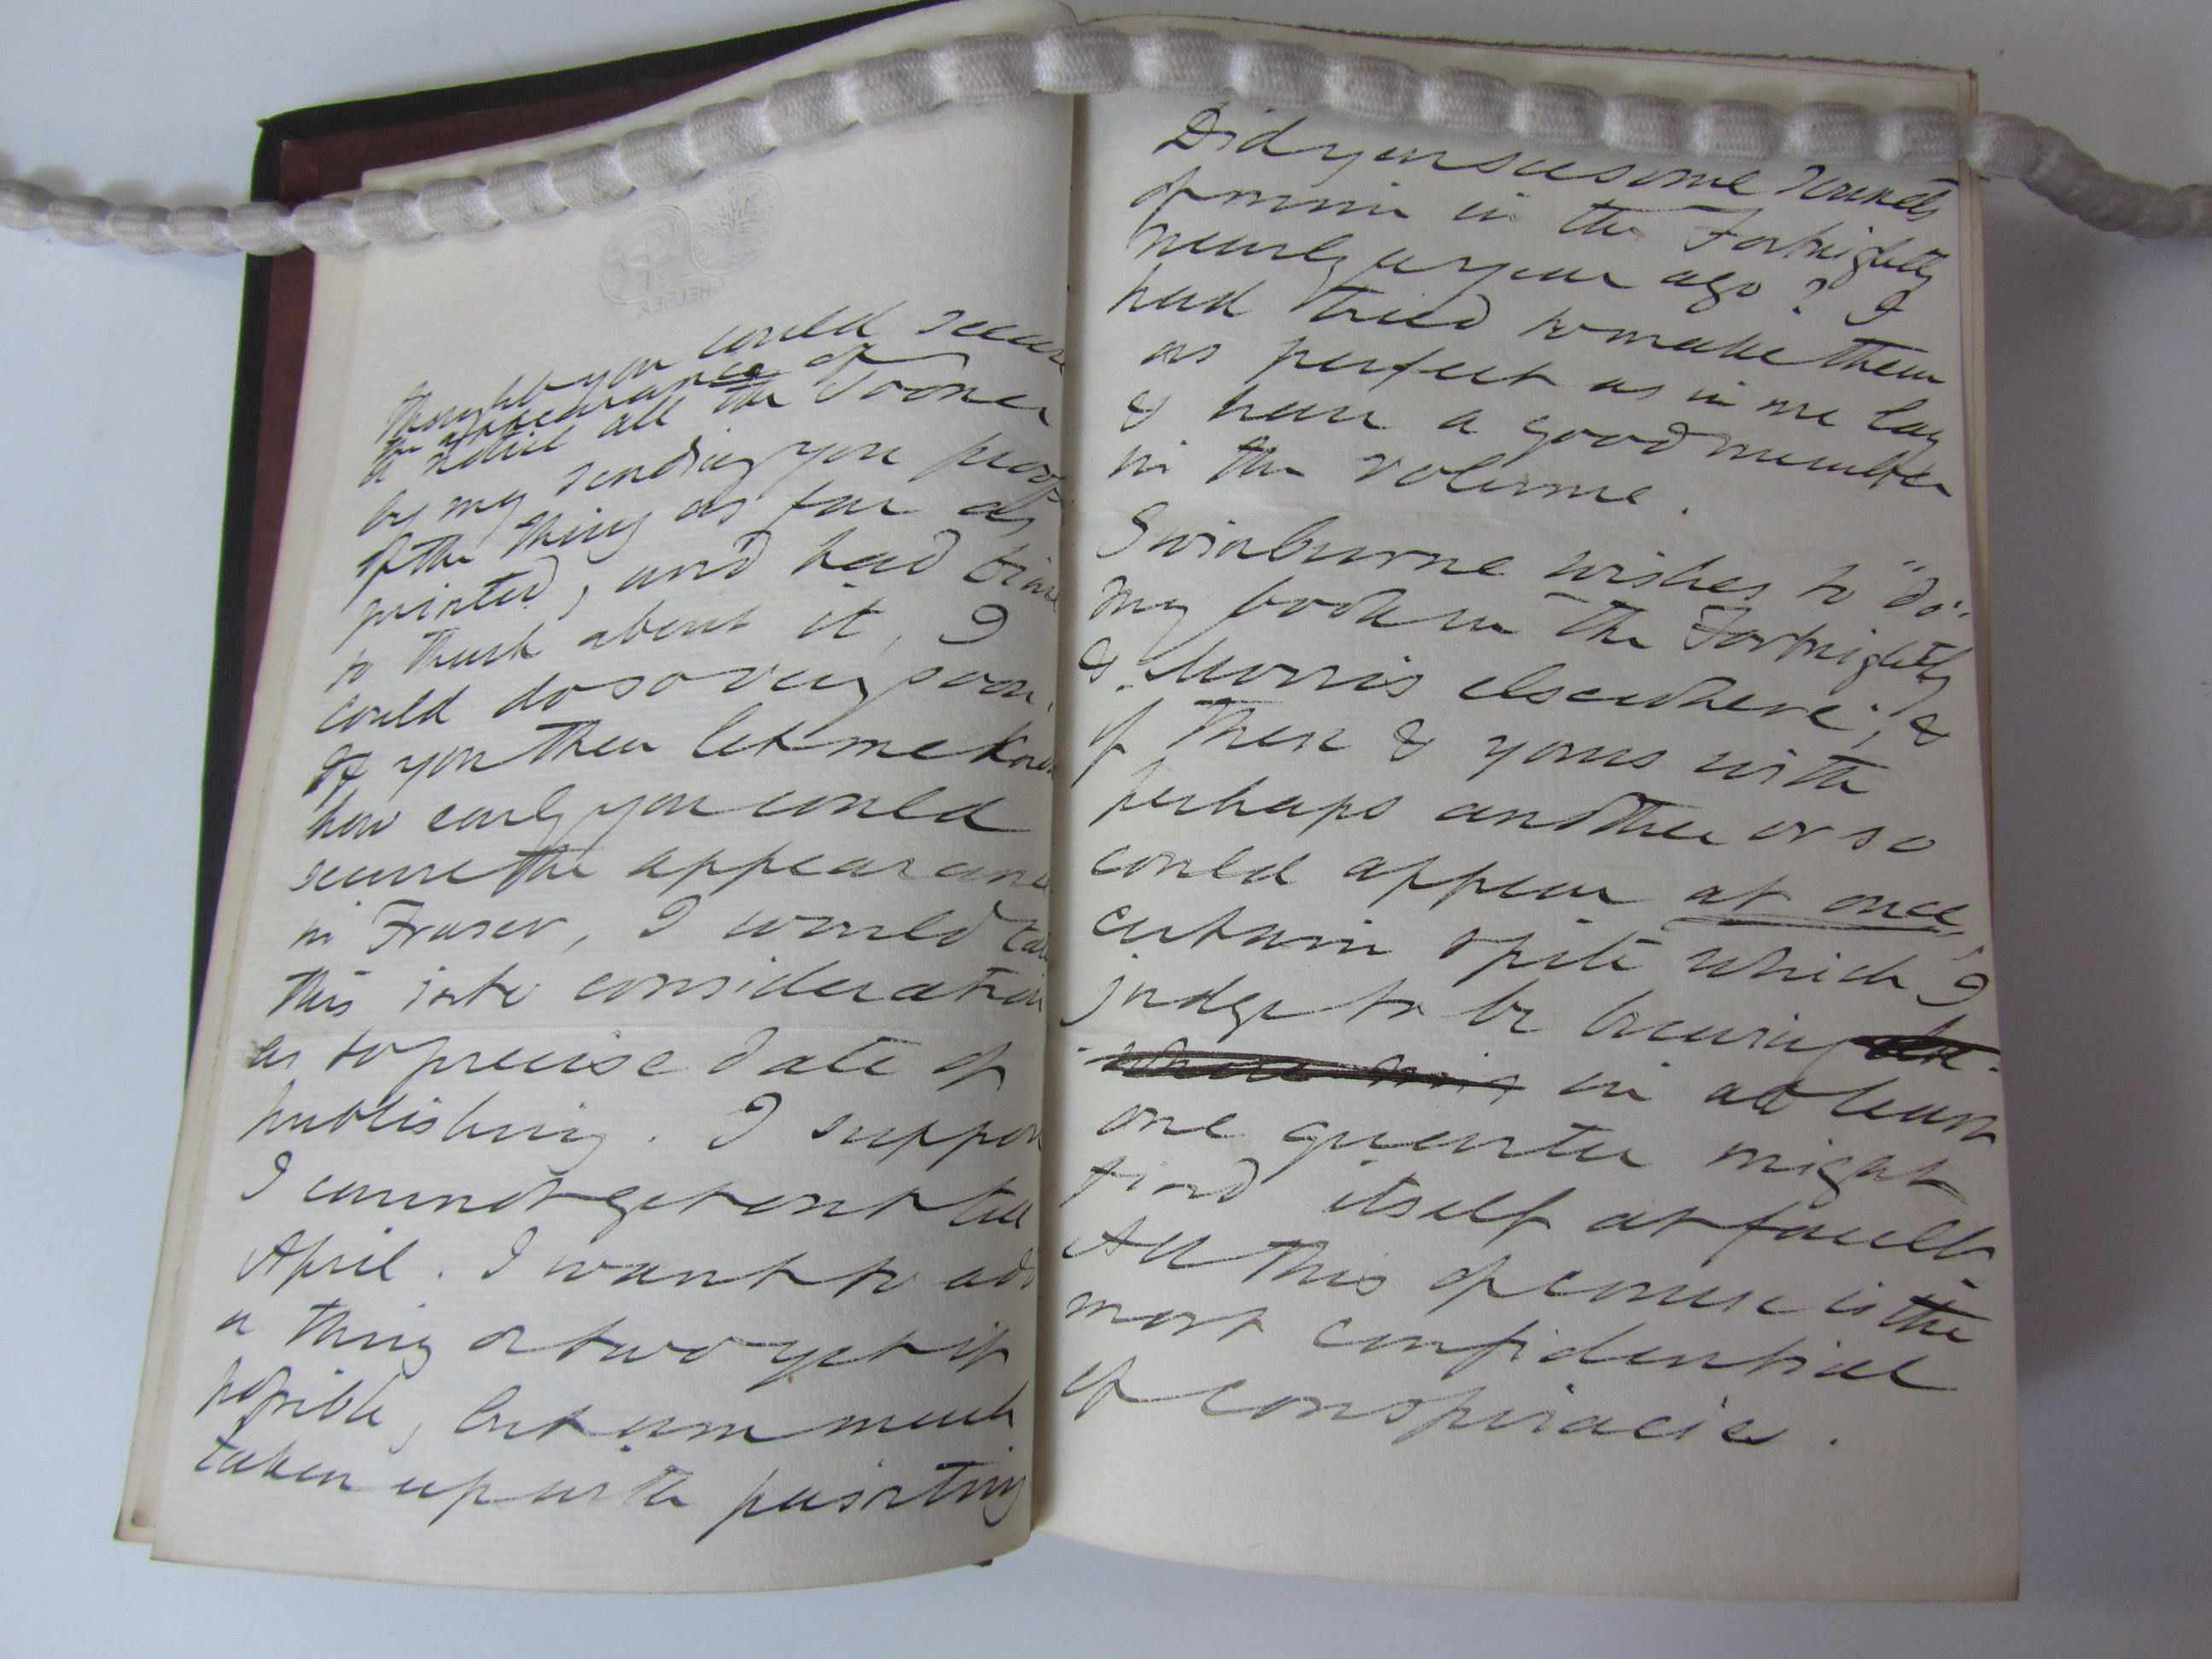 CHELSEA
thought you could secure
the appearance of
a notice all the sooner
by my sending you proofs
of the thing as far as
printed, and had time
to think about it, I
could do so very soon.
If you then let me know
how early you could
secure the appearance
in Fraser, I would take
this into consideration
as to precise date of
publishing. I suppose
I cannot get out till
April. I want to add
a thing or two yet if
possible, but am much
taken up with painting
Did you see some sonnets
of mine in the Fortnightly
nearly a year ago? I
had tried to make them
as perfect as in me lay
& have a good number
in the volume.
Swinburne wishes to "do"
my book in the Fortnightly
& Morris elsewhere; &
if these & yours with
perhaps another or so
could appear at once,
certain spite which I
judge to be brewing
in at least
one quarter might
find itself at fault.
All this of course is the
most confidential
of conspiracies.